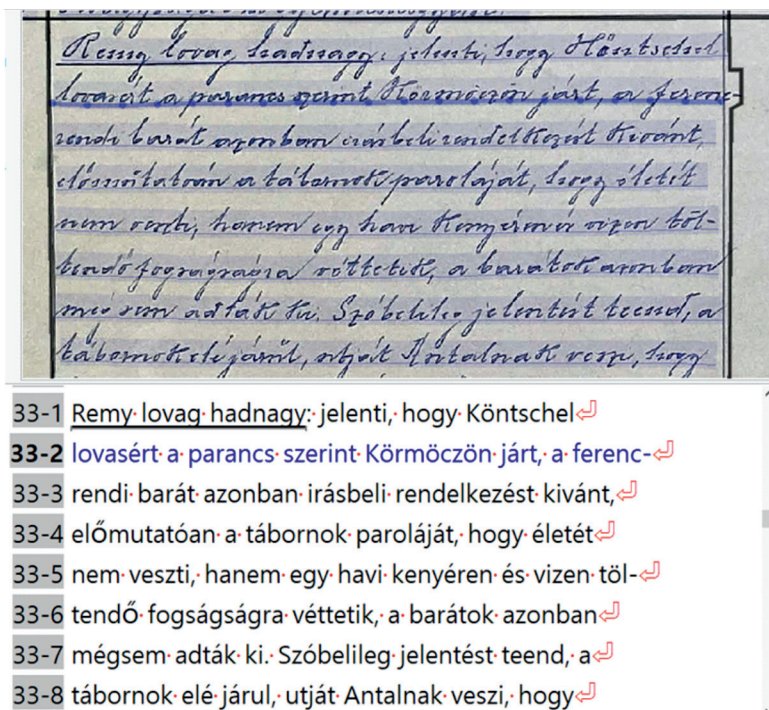 Remy lovag hadnagy: jelenti, hogy
lovasért a parancs szerint Körmöczön járt, a ferenc-
rendi barát azonban irásbeli rendelkezést kivánt,
előmutatóan a tábornok paroláját, hogy életét
nem veszti, hanem egy havi kenyéren és vizen töl-
tendő fogságságra véttetik, a barátok azonban
mégsem adták ki. Szóbelileg jelentést teend, a
tábornok elé járul, utját Antalnak veszi, hogy
33-1 Remy lovag hadnagy: jelenti, hogy Köntschel
33-2 lovasért a parancs szerint Körmöczön járt, a ferenc-
33-3 rendi barát azonban irásbeli rendelkezést kivánt,
33-4 előmutatóan a tábornok paroláját, hogy életét
33-5 nem veszti, hanem egy havi kenyéren és vizen töl-
33-6 tendő fogságságra véttetik, a barátok azonban
33-7 mégsem adták ki. Szóbelileg jelentést teend, a
33-8 tábornok elé járul, utját Antalnak veszi, hogy